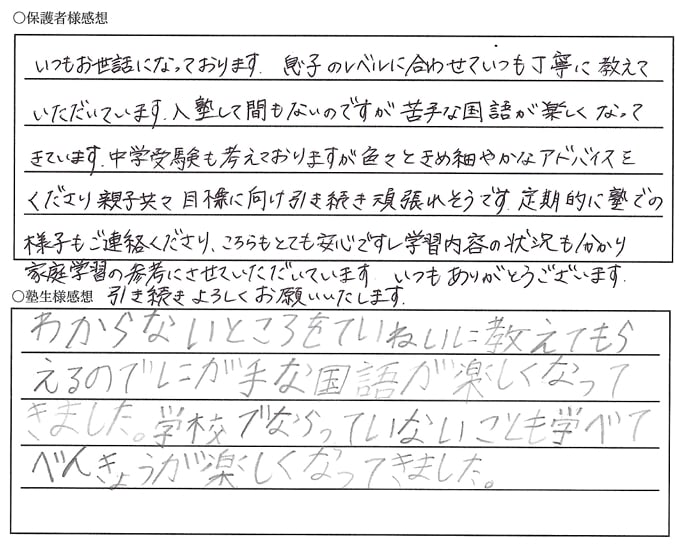 ○保護者様感想
いつもお世話になっております. 息子のレベルに合わせていつも丁寧に教えて
いただいています. 入塾して間もないのですが苦手な国語が楽しくなって
きています. 中学受験も考えておりますが色々ときめ細やかなアドバイスを
くださり親子共々目標に向け引き続き頑張れそうです. 定期的に塾での
様子もご連絡くださり、こちらもとても安心ですし学習内容の状況も分かり
家庭学習の参考にさせていただいています. いつもありがとうございます.
引き続きよろしくお願いいたします.
○塾生様感想
わからないところをていねいに教えてもら
えるのでにが手な国語が楽しくなって
きました。学校でならっていないことも学べて
べんきょうが楽しくなってきました。